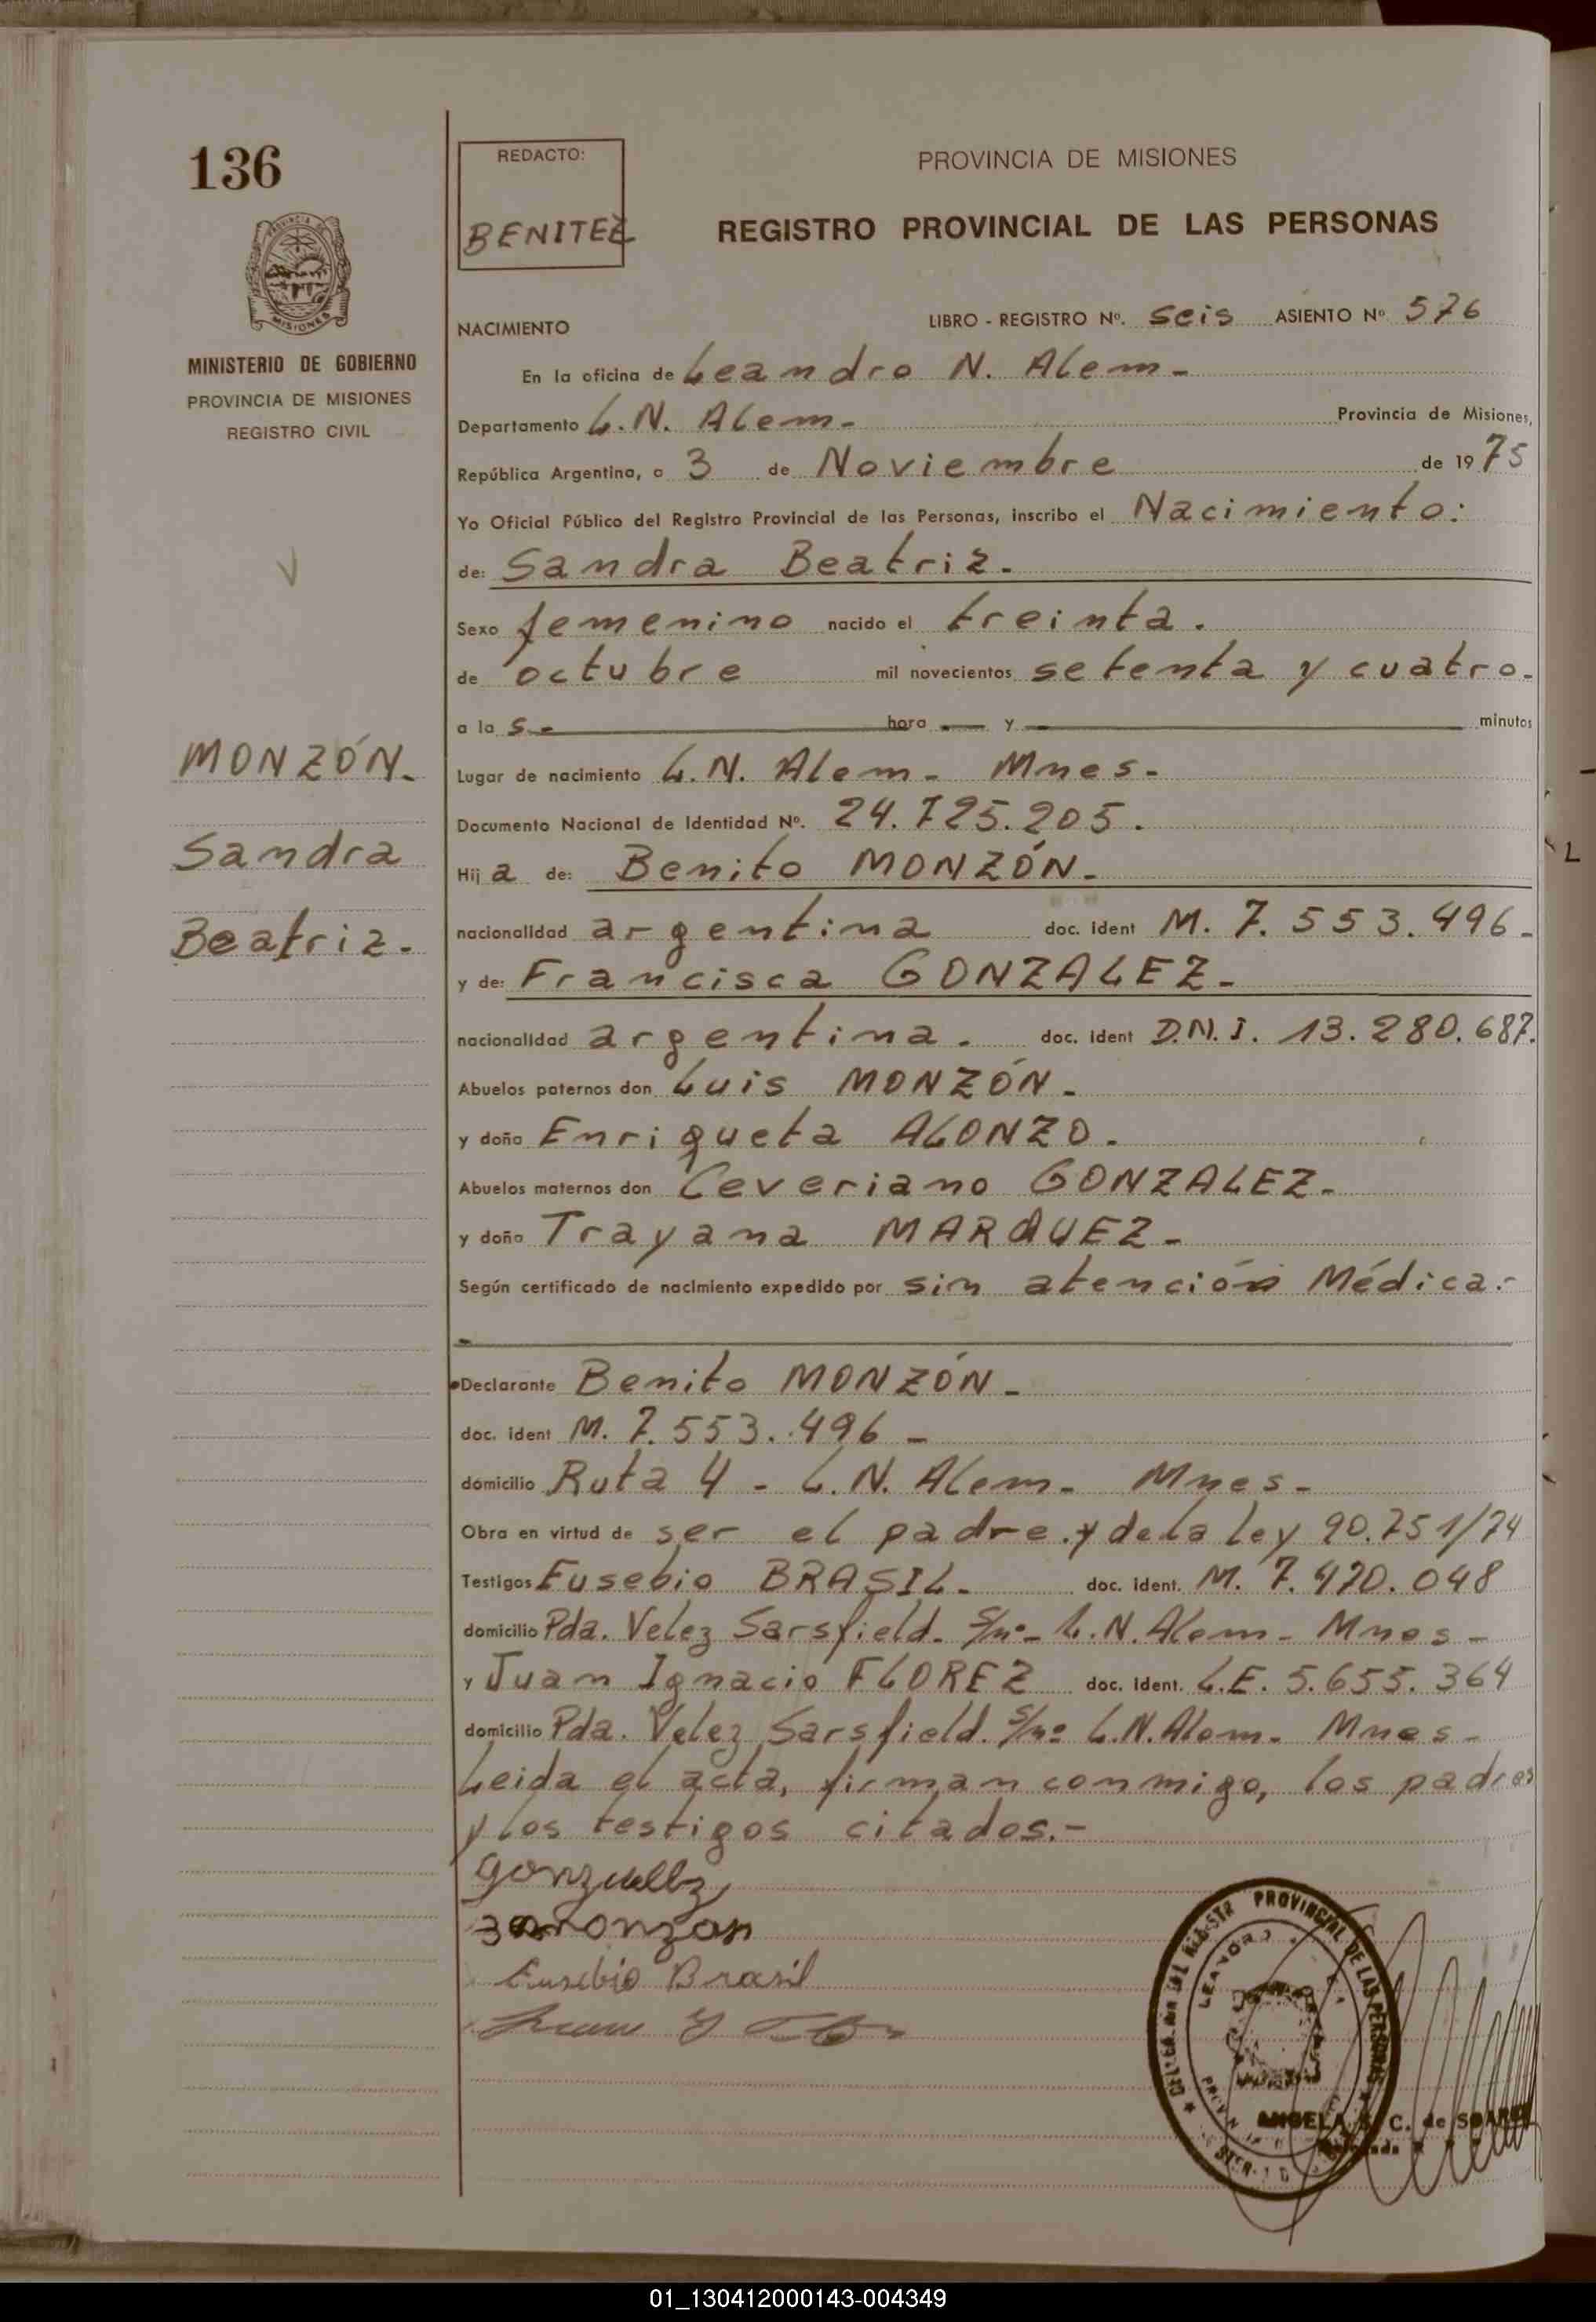 136
REDACTO:
BENITEZ
PROVINCIA DE MISIONES
REGISTRO PROVINCIAL DE LAS PERSONAS
MISIONES
MINISTERIO DE GOBIERNO
PROVINCIA DE MISIONES
REGISTRO CIVIL
NACIMIENTO
LIBRO - REGISTRO Nº. Seis ASIENTO Nº 576
En la oficina de Leandro N. Alem -
Departamento L.N. Alem - Provincia de Misiones,
República Argentina, a 3 de Noviembre de 1975
Yo Oficial Público del Registro Provincial de las Personas, inscribo el Nacimiento:
de: Sandra Beatriz.
Sexo femenino nacido el treinta.
de octubre mil novecientos setenta y cuatro.
a las - hora - y - minutos
Lugar de nacimiento L.N. Alem - Mnes -
Documento Nacional de Identidad Nº. 24.725.205.
Hija de: Benito MONZÓN -
nacionalidad argentina doc. ident M. 7.553.496 -
y de: Francisca GONZALEZ -
nacionalidad argentina. doc. ident D.N.I. 13.280.687.
Abuelos paternos don Luis MONZÓN -
y doña Enriqueta ALONZO.
Abuelos maternos don Ceveriano GONZALEZ -
y doña Trayana MARQUEZ -
Según certificado de nacimiento expedido por sin atención Médica.-
MONZÓN -
Sandra
Beatriz -
Declarante Benito MONZÓN -
doc. ident M. 7.553.496 -
domicilio Ruta 4 - L.N. Alem - Mnes -
Obra en virtud de ser el padre y de la ley 20.751/74
Testigos Eusebio BRASIL - doc. ident. M. 7.470.048
domicilio Pda. Velez Sarsfield - S/nº - L.N. Alem - Mnes -
y Juan Ignacio FLOREZ doc. ident. L.E. 5.655.364
domicilio Pda. Velez Sarsfield. S/nº L.N. Alem - Mnes -
Leida el acta, firman conmigo, los padres
y los testigos citados.-
Eusebio Brasil
PROVINCIAL DE LAS PERSONAS
ANGELA C. de SOAREZ
01_130412000143-004349